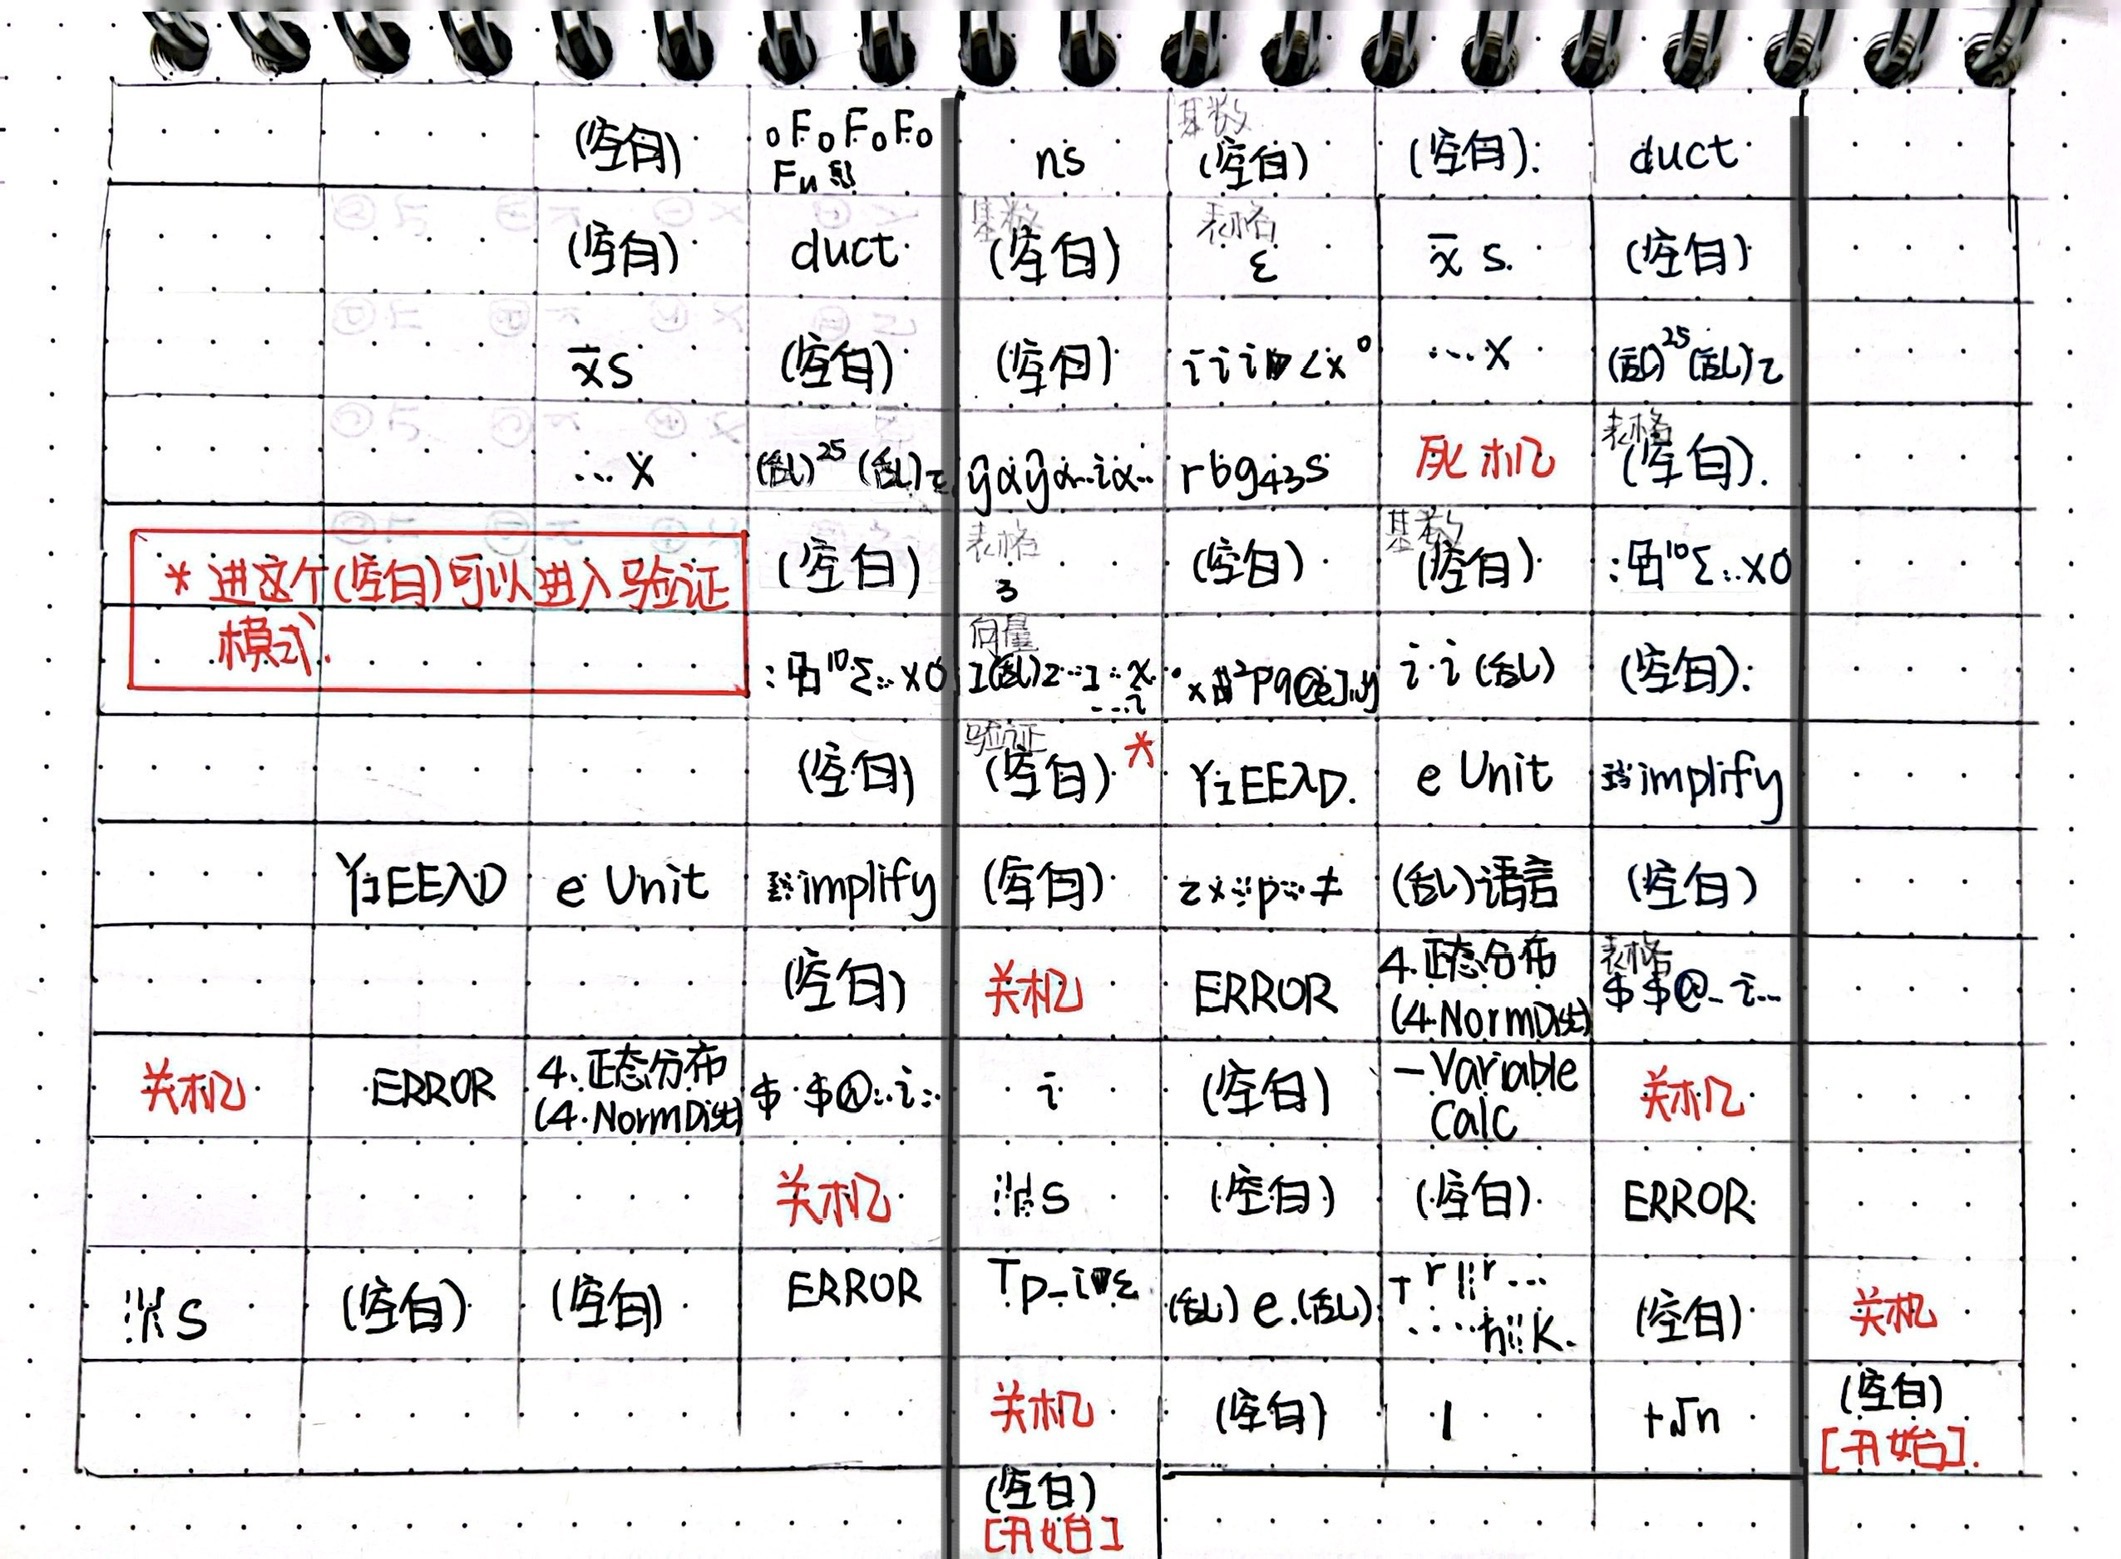 (空白)
oFoFoFo
Fu
ns
基数
(空白)
(空白)
duct
(空白)
duct
基数
(空白)
表格
ε
x̄ s
(空白)
x̄s
(空白)
(空白)
iii <x⁰
…x
(乱)²⁵(乱)z
…x
(乱)²⁵(乱)z
ŷαŷα..iα..
rbg43s
死机
表格
(空白)
* 进这个(空白)可以进入验证
模式.
(空白)
表格
3
(空白)
基数
(空白)
¹⁰Σ:.x0
¹⁰Σ:.x0
向量
I(乱)z…I
°x ²pq@e]
i·i(乱)
(空白)
(空白)
验证
(空白) *
YiEEλD
e Unit
implify
YiEEλD
e Unit
implify
(空白)
zx p ≠
(乱)语言
(空白)
(空白)
关机
ERROR
4.正态分布
(4.NormDist)
表格
$$@..i…
关机
ERROR
4.正态分布
(4.NormDist)
$ $@..i:.
i
(空白)
-Variable
Calc
关机
关机
S
(空白)
(空白)
ERROR
S
(空白)
(空白)
ERROR
Tp-i
(乱)e.(乱)
K
(空白)
关机
关机
(空白)
1
+√n
(空白)
[开始]
(空白)
[开始]